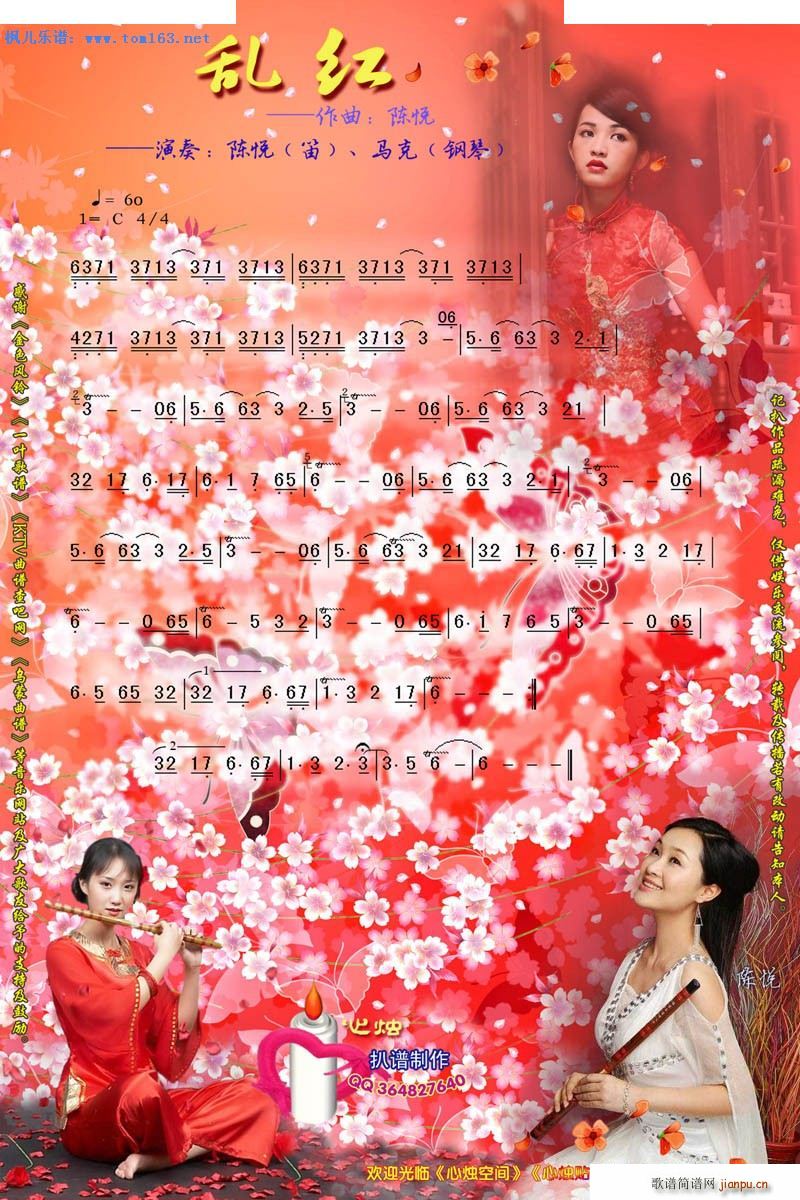 枫儿乐谱: www.tom163.net
乱红
——作曲: 陈悦
——演奏: 陈悦（笛）、马克（钢琴）
♩= 60
1= C 4/4
6371 3713 371 3713|6371 3713 371 3713|
4271 3713 371 3713|5271 3713 3 -|06 5·6 63 3 2·1|
3 - - 06|5·6 63 3 2·5|3 - - 06|5·6 63 3 21|
32 17 6·17|6·1 7 65|6 - - 06|5·6 63 3 2·1|3 - - 06|
5·6 63 3 2·5|3 - - 06|5·6 63 3 21|32 17 6·67|1·3 2 17|
6 - 0 65|6 - 5 32|3 - - 03|6·1 7 65|3 - 0 65|
6·5 65 32|1 32 17 6·67|1·3 2 17|6 - - -:‖
2 32 17 6·67|1·3 2·3|3·5 6 -|6 - - -‖
感谢《金色风铃》《一叶歌谱》《KTV曲谱查吧网》《乌蒙曲谱》等音乐网站及广大歌友给予的支持及鼓励。
记扒作品疏漏难免，仅供娱乐交流参阅，转载及传播若有改动请告知本人。
陈悦
心烛
扒谱制作
QQ 364827640
欢迎光临《心烛空间》《心烛贴
歌谱简谱网
jianpu.cn